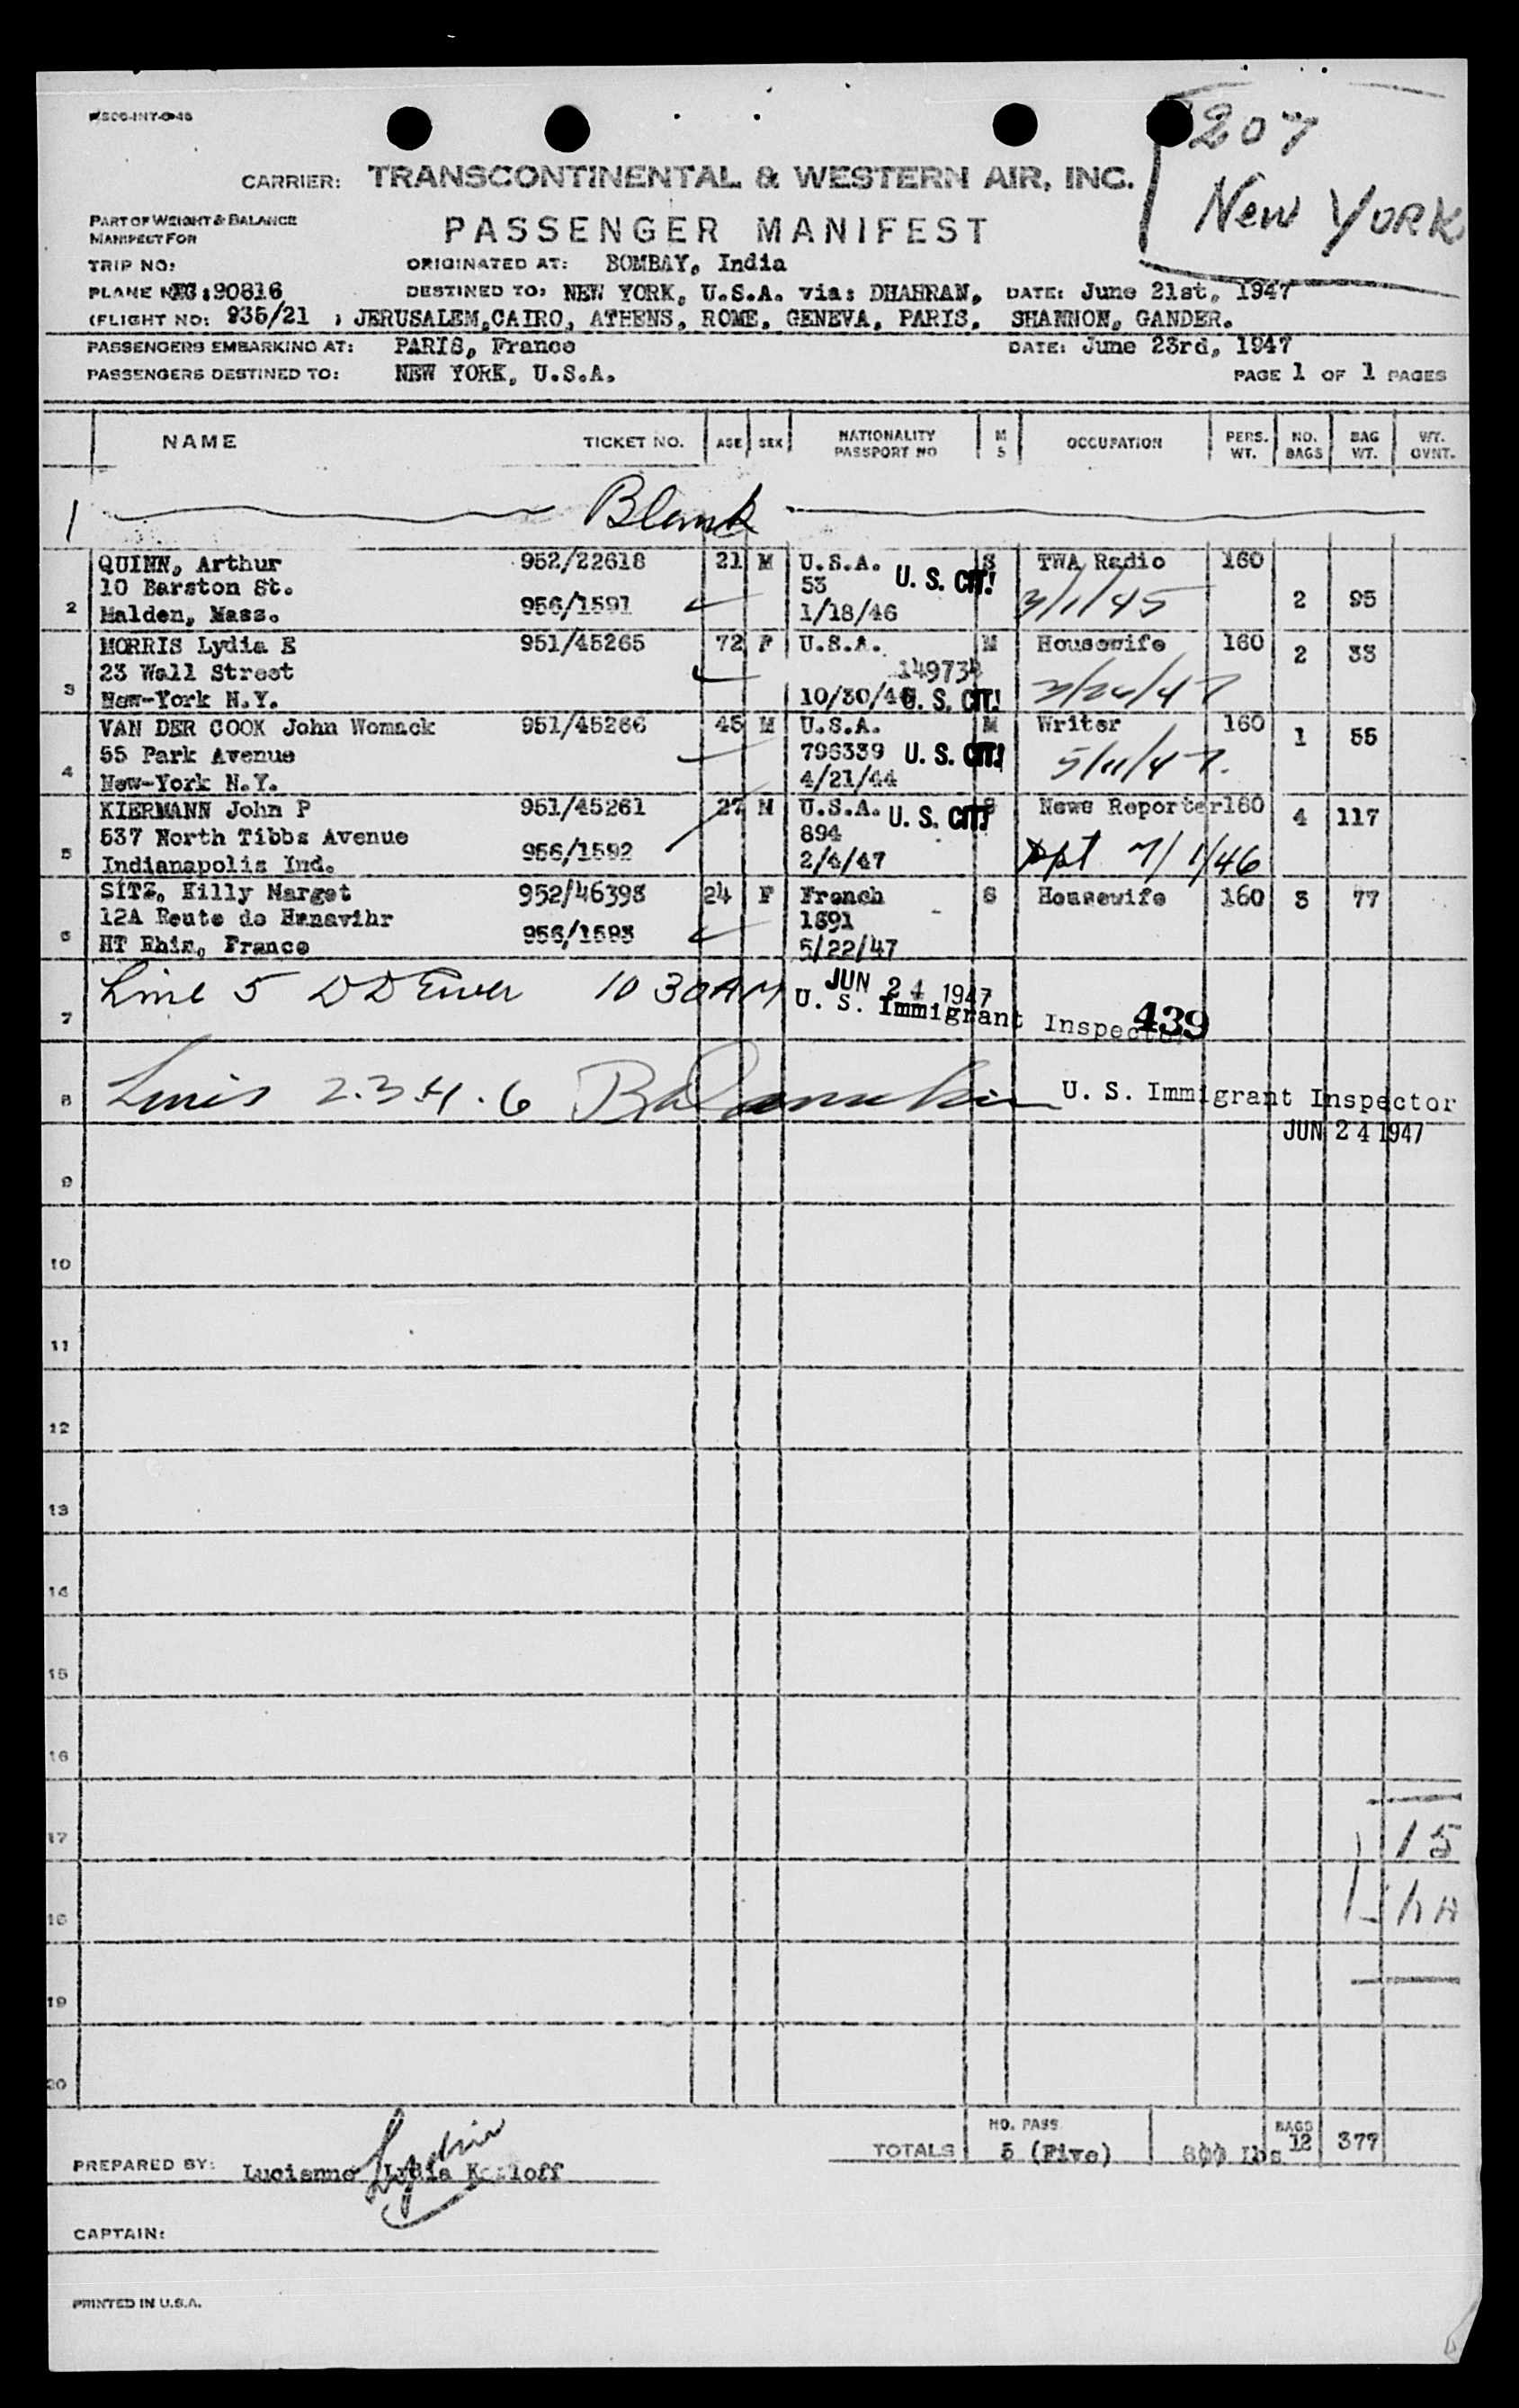 207
New York
CARRIER: TRANSCONTINENTAL & WESTERN AIR, INC.
PART OF WEIGHT & BALANCE
MANIFEST FOR
PASSENGER MANIFEST
TRIP NO:
ORIGINATED AT: BOMBAY, India
PLANE NC:90816
DESTINED TO: NEW YORK, U.S.A. via: DHAHRAN, DATE: June 21st, 1947
(FLIGHT NO: 935/21 ) JERUSALEM,CAIRO, ATHENS, ROME, GENEVA, PARIS, SHANNON, GANDER.
PASSENGERS EMBARKING AT: PARIS, France DATE: June 23rd, 1947
PASSENGERS DESTINED TO: NEW YORK, U.S.A. PAGE 1 OF 1 PAGES
NAME TICKET NO. AGE SEX NATIONALITY PASSPORT NO M S OCCUPATION PERS. WT. NO. BAGS BAG WT. WT. OVNT.
1 Blank
QUINN, Arthur 952/22618 21 M U.S.A. S TWA Radio 160
10 Barston St. 53 U. S. CIT!
2 Malden, Mass. 956/1591 1/18/46 3/1/45 2 95
MORRIS Lydia E 951/45265 72 F U.S.A. M Housewife 160 2 33
23 Wall Street 149734
3 New-York N.Y. 10/30/46 U. S. CIT! 3/26/47
VAN DER COOK John Womack 951/45266 45 M U.S.A. M Writer 160 1 55
55 Park Avenue 796339 U. S. CIT!
4 New-York N.Y. 4/21/44 5/11/47.
KIERMANN John P 951/45261 27 M U.S.A. S News Reporter 160 4 117
537 North Tibbs Avenue 894 U. S. CIT!
5 Indianapolis Ind. 956/1592 2/4/47 ppt 7/1/46
SITZ, Killy Marget 952/46398 24 F French S Housewife 160 3 77
12A Route de 1891
6 HT Rhin, France 956/1593 5/22/47
7 Line 5 10 30 AM JUN 24 1947
U. S. Immigrant Inspector 439
8 Lines 2.3.4.6 U. S. Immigrant Inspector
JUN 24 1947
9
10
11
12
13
14
15
16
17
15
18
19
20
TOTALS NO. PASS. 5 (Five) 800 Lbs BAGS 12 377
PREPARED BY: Lucienne Lydia
Lydia
CAPTAIN:
PRINTED IN U.S.A.